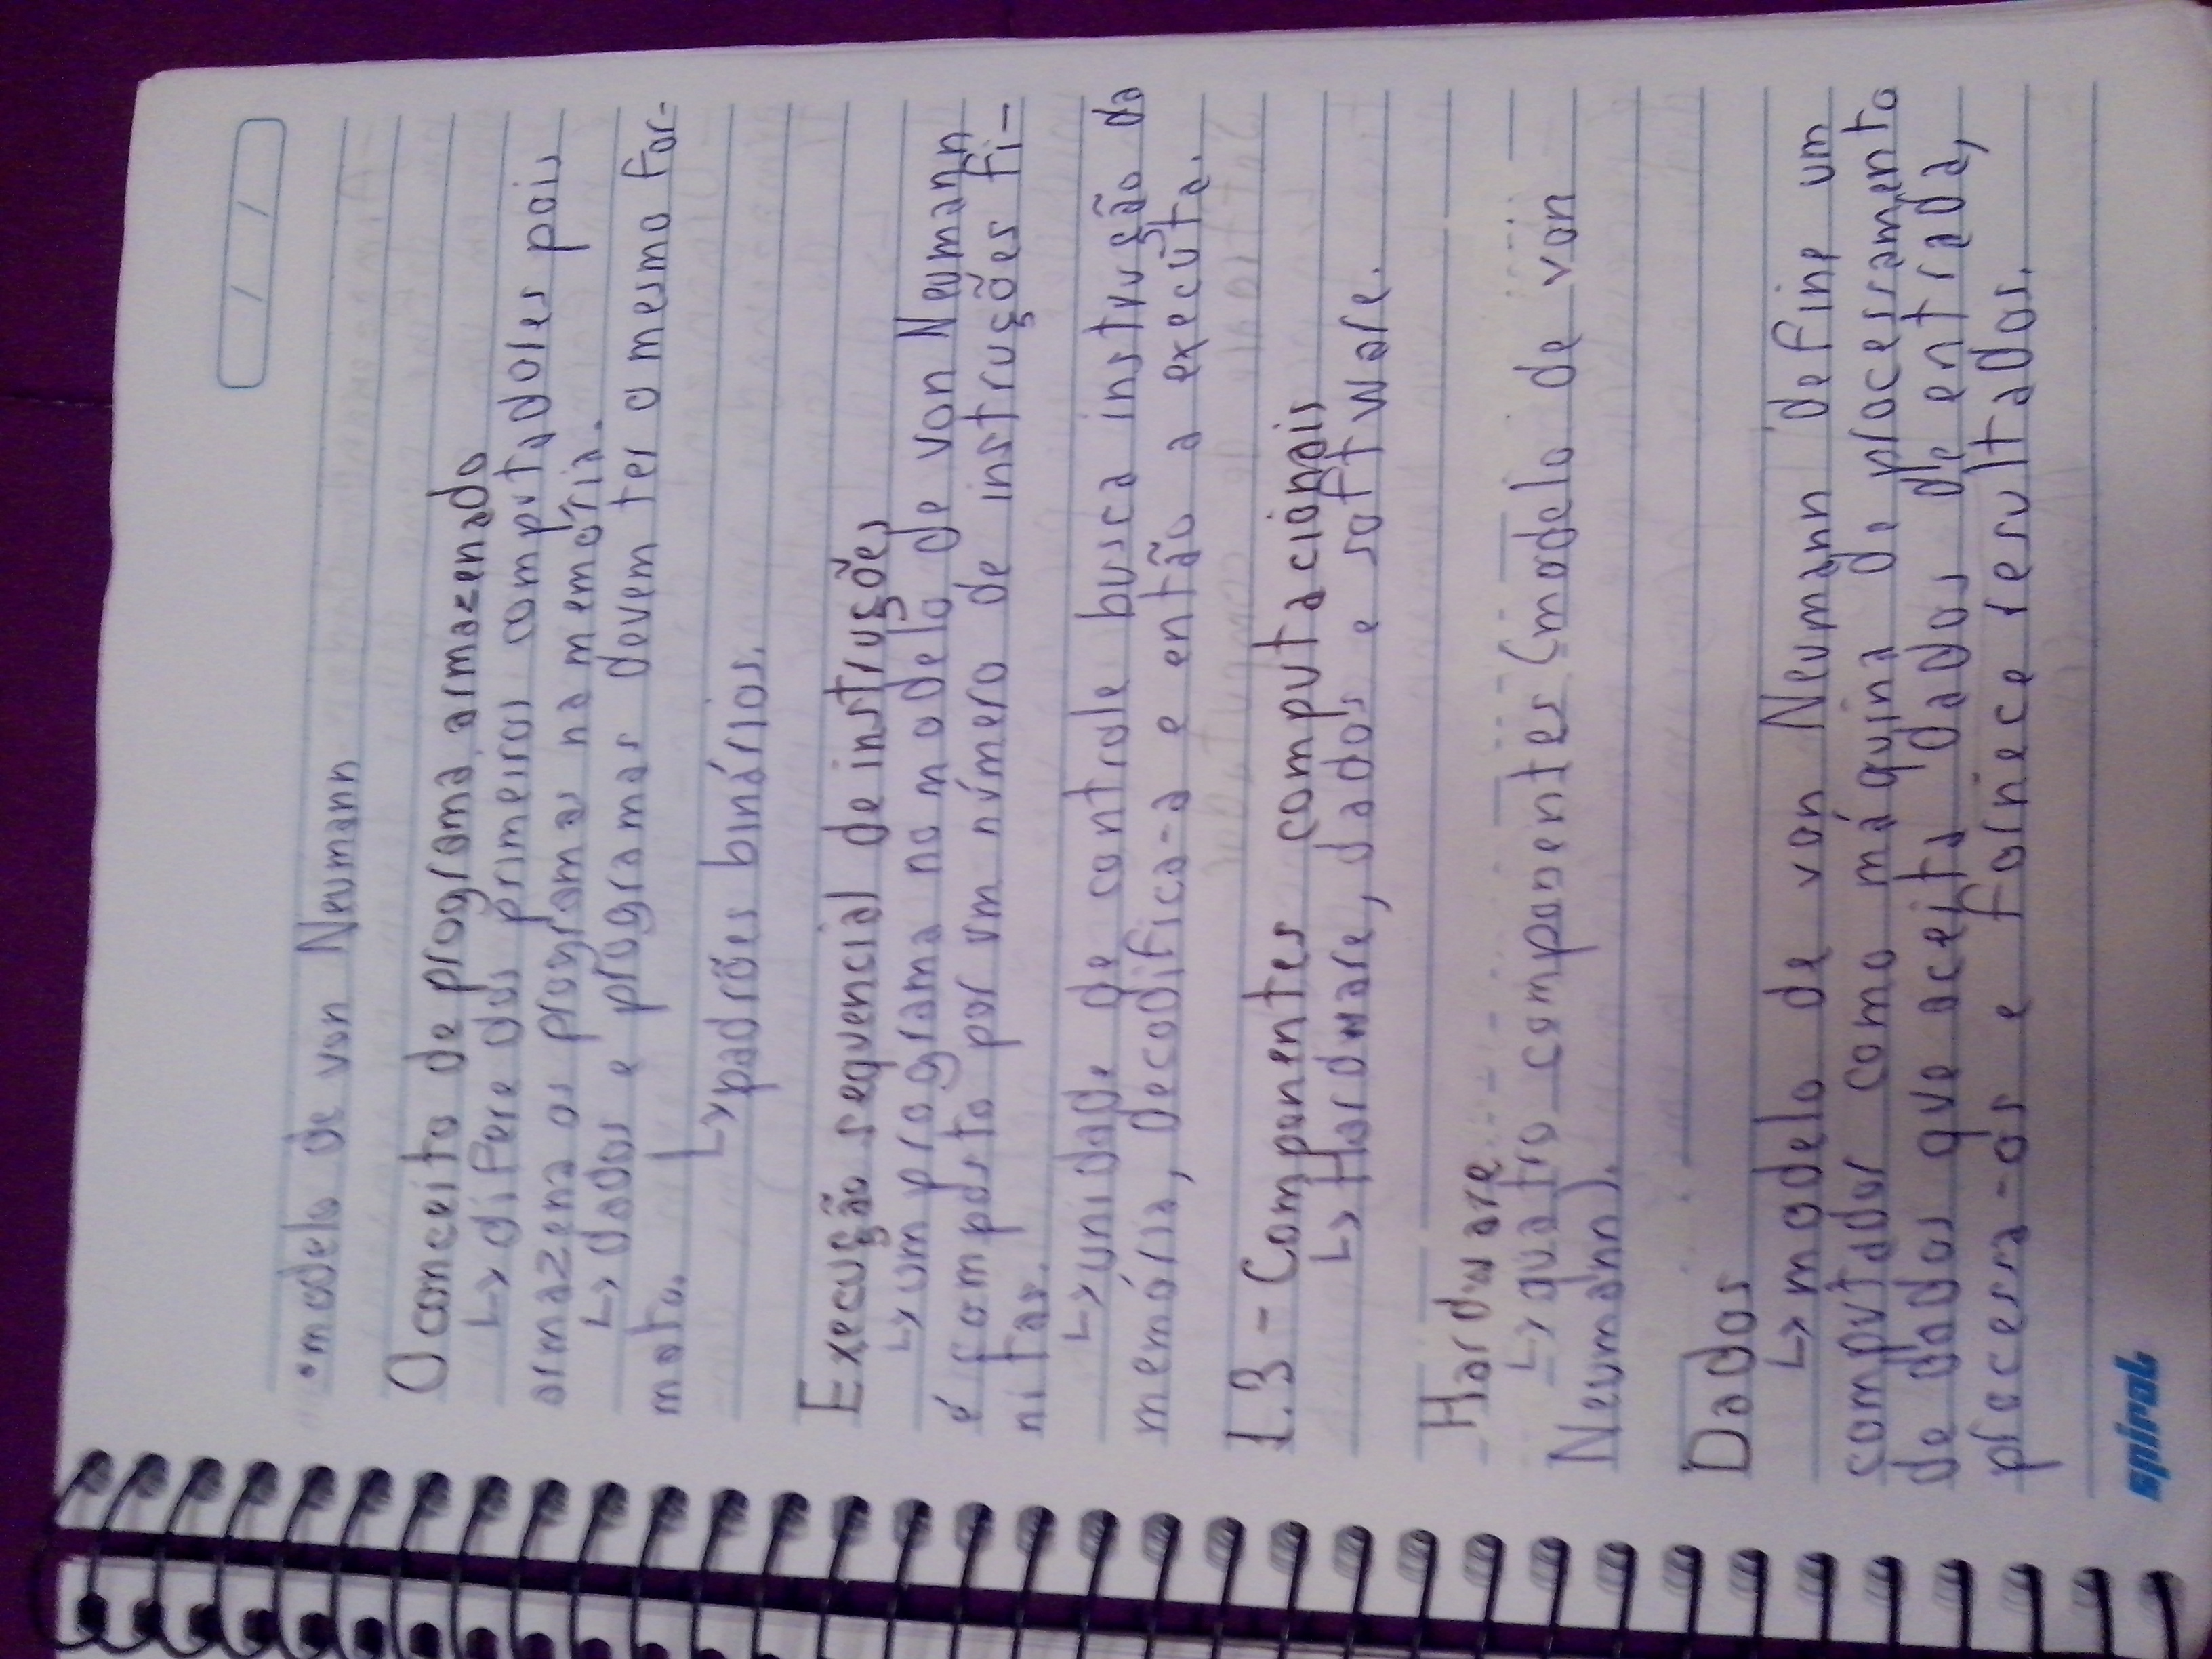 •modelo de von Neumann
O conceito de programa armazenado
↳ difere dos primeiros computadores pois
armazena os programas na memória.
↳ dados e programas devem ter o mesmo for-
mato.
↳ padrões binários.
Execução sequencial de instruções
↳ um programa no modelo de von Neumann
é composto por um número de instruções fi-
nitas.
↳ unidade de controle busca instrução da
memória, decodifica-a e então a executa.
1.3 - Componentes computacionais
↳ Hardware, dados e software.
Hardware
↳ quatro componentes (modelo de von
Neumann).
Dados
↳ modelo de von Neumann define um
computador como máquina de processamento
de dados que aceita dados de entrada,
processa-os e fornece resultados.
spiral